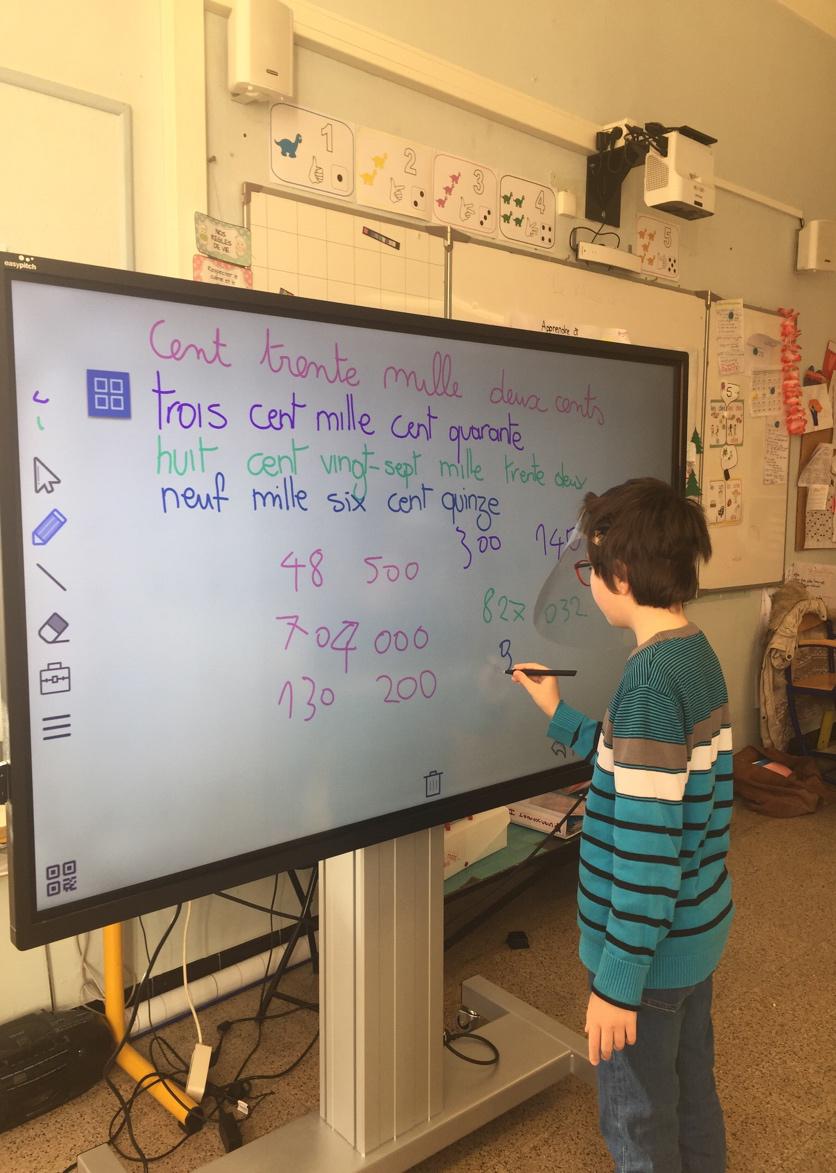 1
2
3
4
5
NOS RÈGLES DE VIE
easypitch
Apprendre à
5
Cent trente mille deux cents
trois cent mille cent quarante
huit cent vingt-sept mille trente deux
neuf mille six cent quinze
300 140
48 500
827 032
704 000
9
130 200